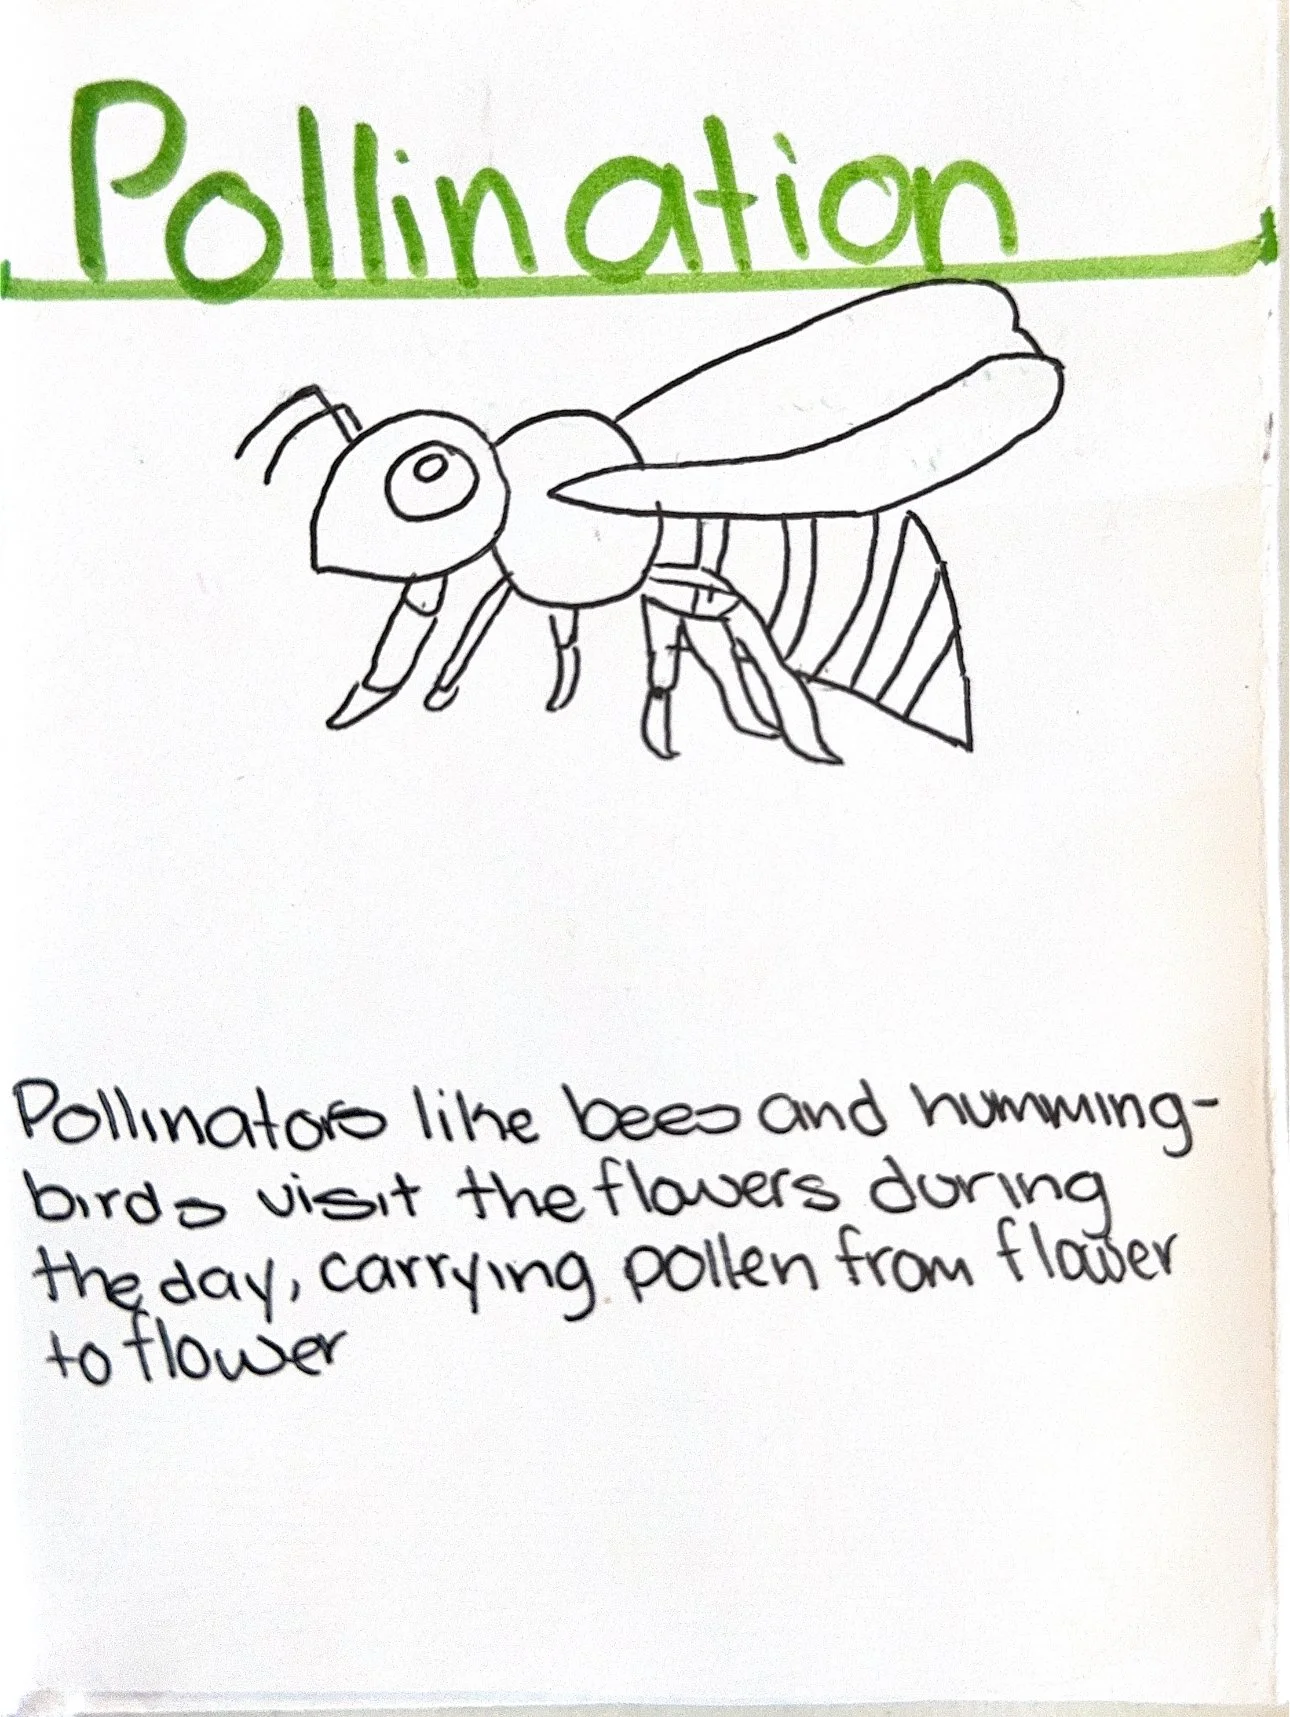 Pollination
Pollinators like bees and humming-
birds visit the flowers during
the day, carrying pollen from flower
to flower